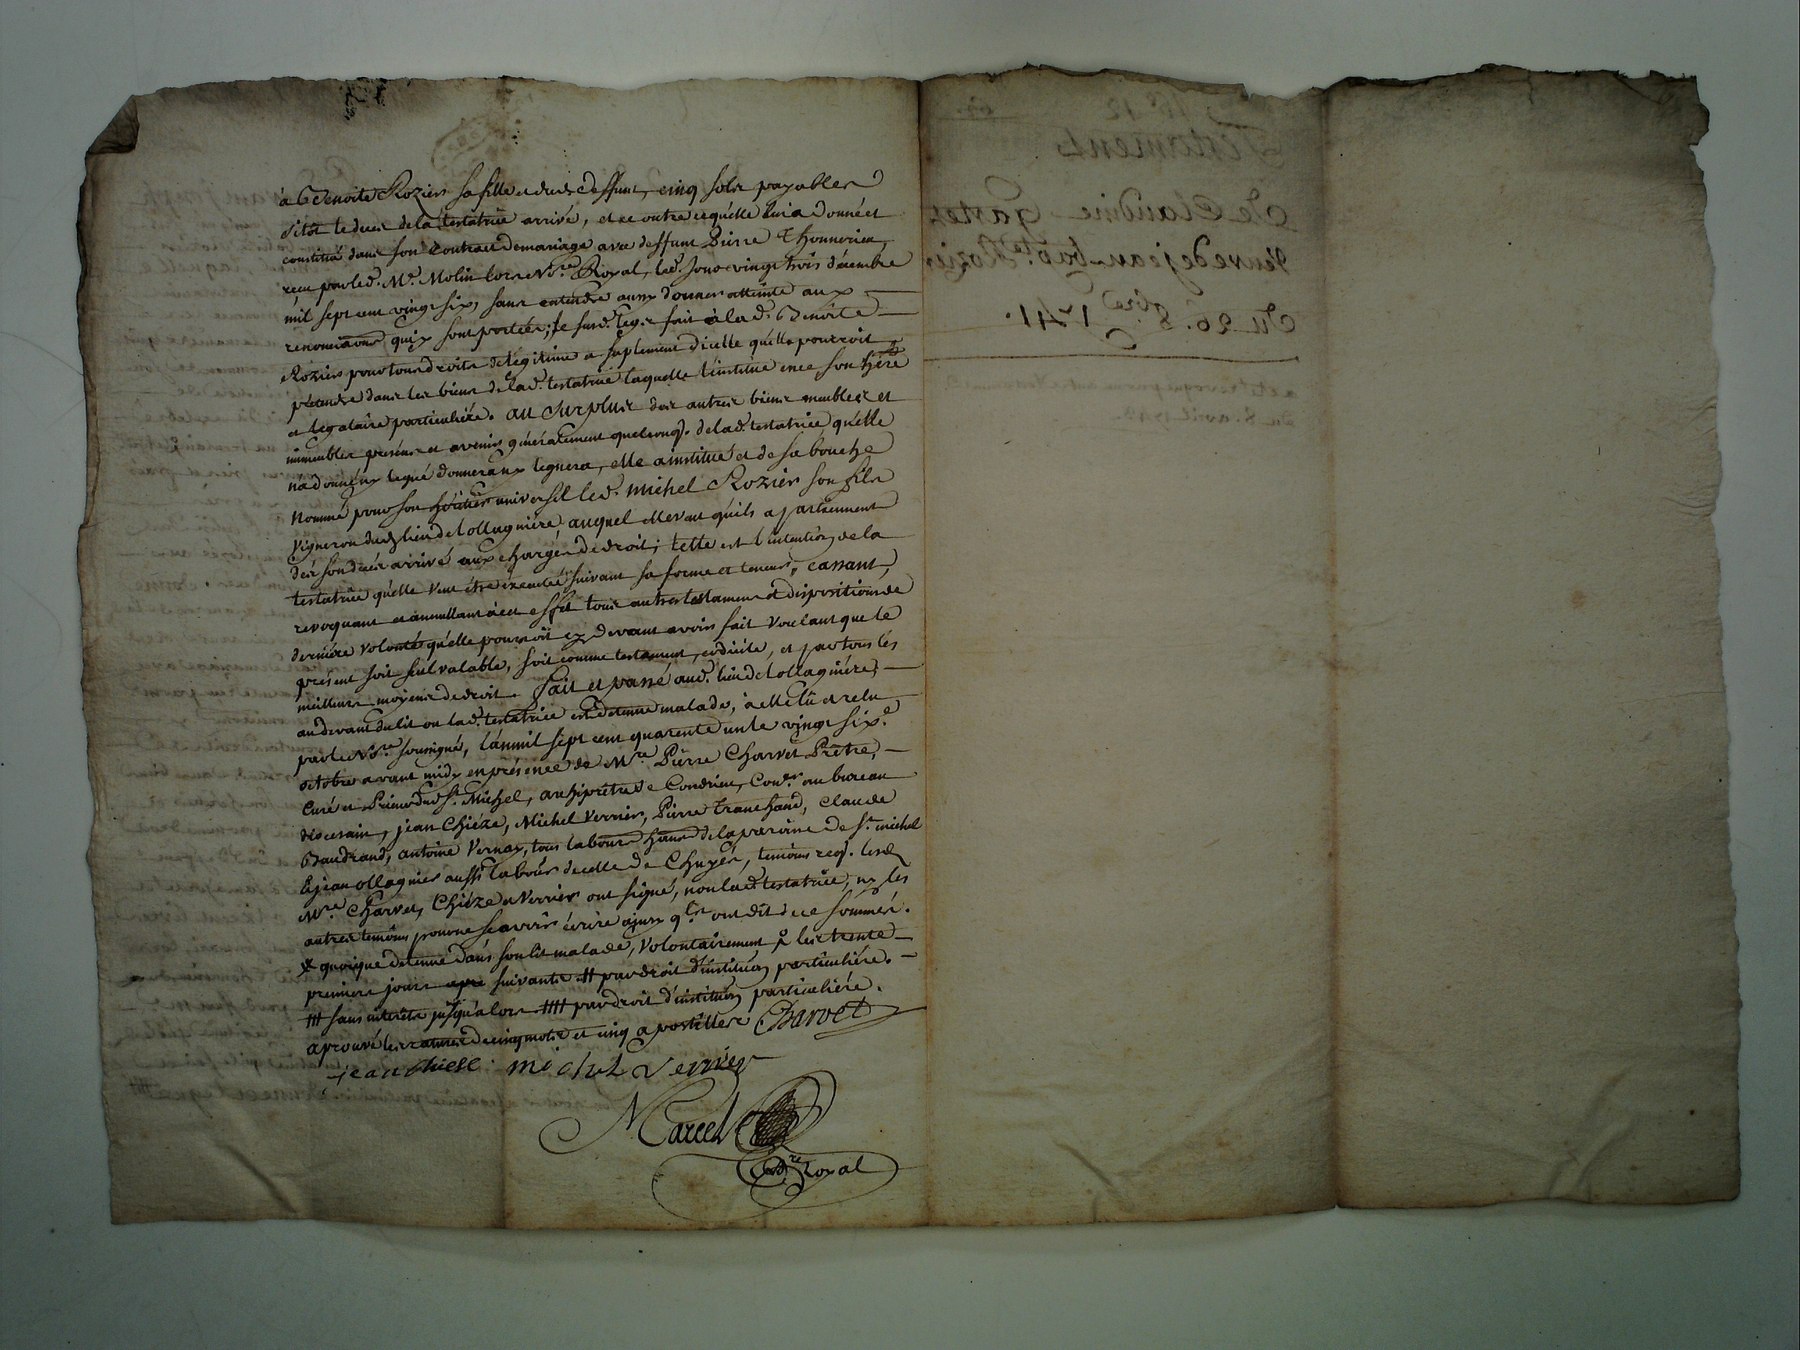 à Benoite Rozier sa fille et dud. deffunt, cinq sols payables
sitôt le deces de la testatrice arrivé, et ce outre ce qu'elle lui a donné et
constitué dans son contract de mariage avec deffunt Pierre Thonnerieu,
receu par led. Me. Molin lors No.re Royal, led. jour vingt trois décembre
mil sept cent vingt six, sans entendre aux donner atteinte aux
renonciaons quiy sont portées; le surd. legs fait à lad. Benoite
Rozier pour tous droits de légitime et suplement d'icelle qu'elle pourroit
prétendre dans les biens de lad. testatrice laquelle l'institue en ce son hére
et légataire particuliére. au surplus des autres biens meubles et
immeubles présens et avenirs généralement quelconq. de lad. testatrice qu'elle
n'a donné ny legué donnera ny leguera, elle a institué et de sa bouche
nommé pour son héritier universel led. michel Rozier son fils
vigneron dud. lieu de Lollagniére auquel elle veut qu'ils apartiennent
dès son décés arrivé aux charges de droit; telle est l'intention de la
testatrice qu'elle veut être éxecutée suivant sa forme et teneur, cassant,
revoquant et annullant à cet effet tous autres testamens et dispositions de
derniére volonté qu'elle pourroit cy devant avoir fait voulant que le
present soit seul valable, soit comme testament, codicile, et par tous les
meilleurs moyens de droit. fait et passé aud. lieu de Lollagniére,
au devant du lit ou lad. testatrice est detenue malade, à elle lû et relu
par le No.re soussigné, l'an mil sept cent quarente un le vingt six.e
octobre avant midy en présence de M.re Pierre Charvet Prêtre,
Curé et Prieur dud. St. Michel, archiprêtre de Condrieu, Con.er au bureau
diocesain, jean Chiéze, Michel Verrier, Pierre tranchand, Claude
Baudrand, antoine Vernay, tous laboureurs de la paroisse de St. michel
& jean ollagnier aussi labour. de celle de Chuyer, temoins req. lesd.
M.re Charvet, Chiéze et Verrier ont signé, non lad. testatrice, ny les
autres temoins pour ne scavoir écrire ainsy qu'ils ont dit de ce sommés.
quoique detenue dans son lit malade, volontairement les trente
premiers jours suivants # par droit d'institu.on particuliére.
### sans intérêts jusqu'alors #### par droit d'institu.on particuliére.
aprouvé les ratures de cinq mots et cinq apostilles Charvet
jean chieze michel verrier
Marcel
No.re Royal
No. 12
Testament
De Claudine Gartet
veuve de jean bapt.e Rozier
Du 26. 8.bre 1741.
du 8. avril